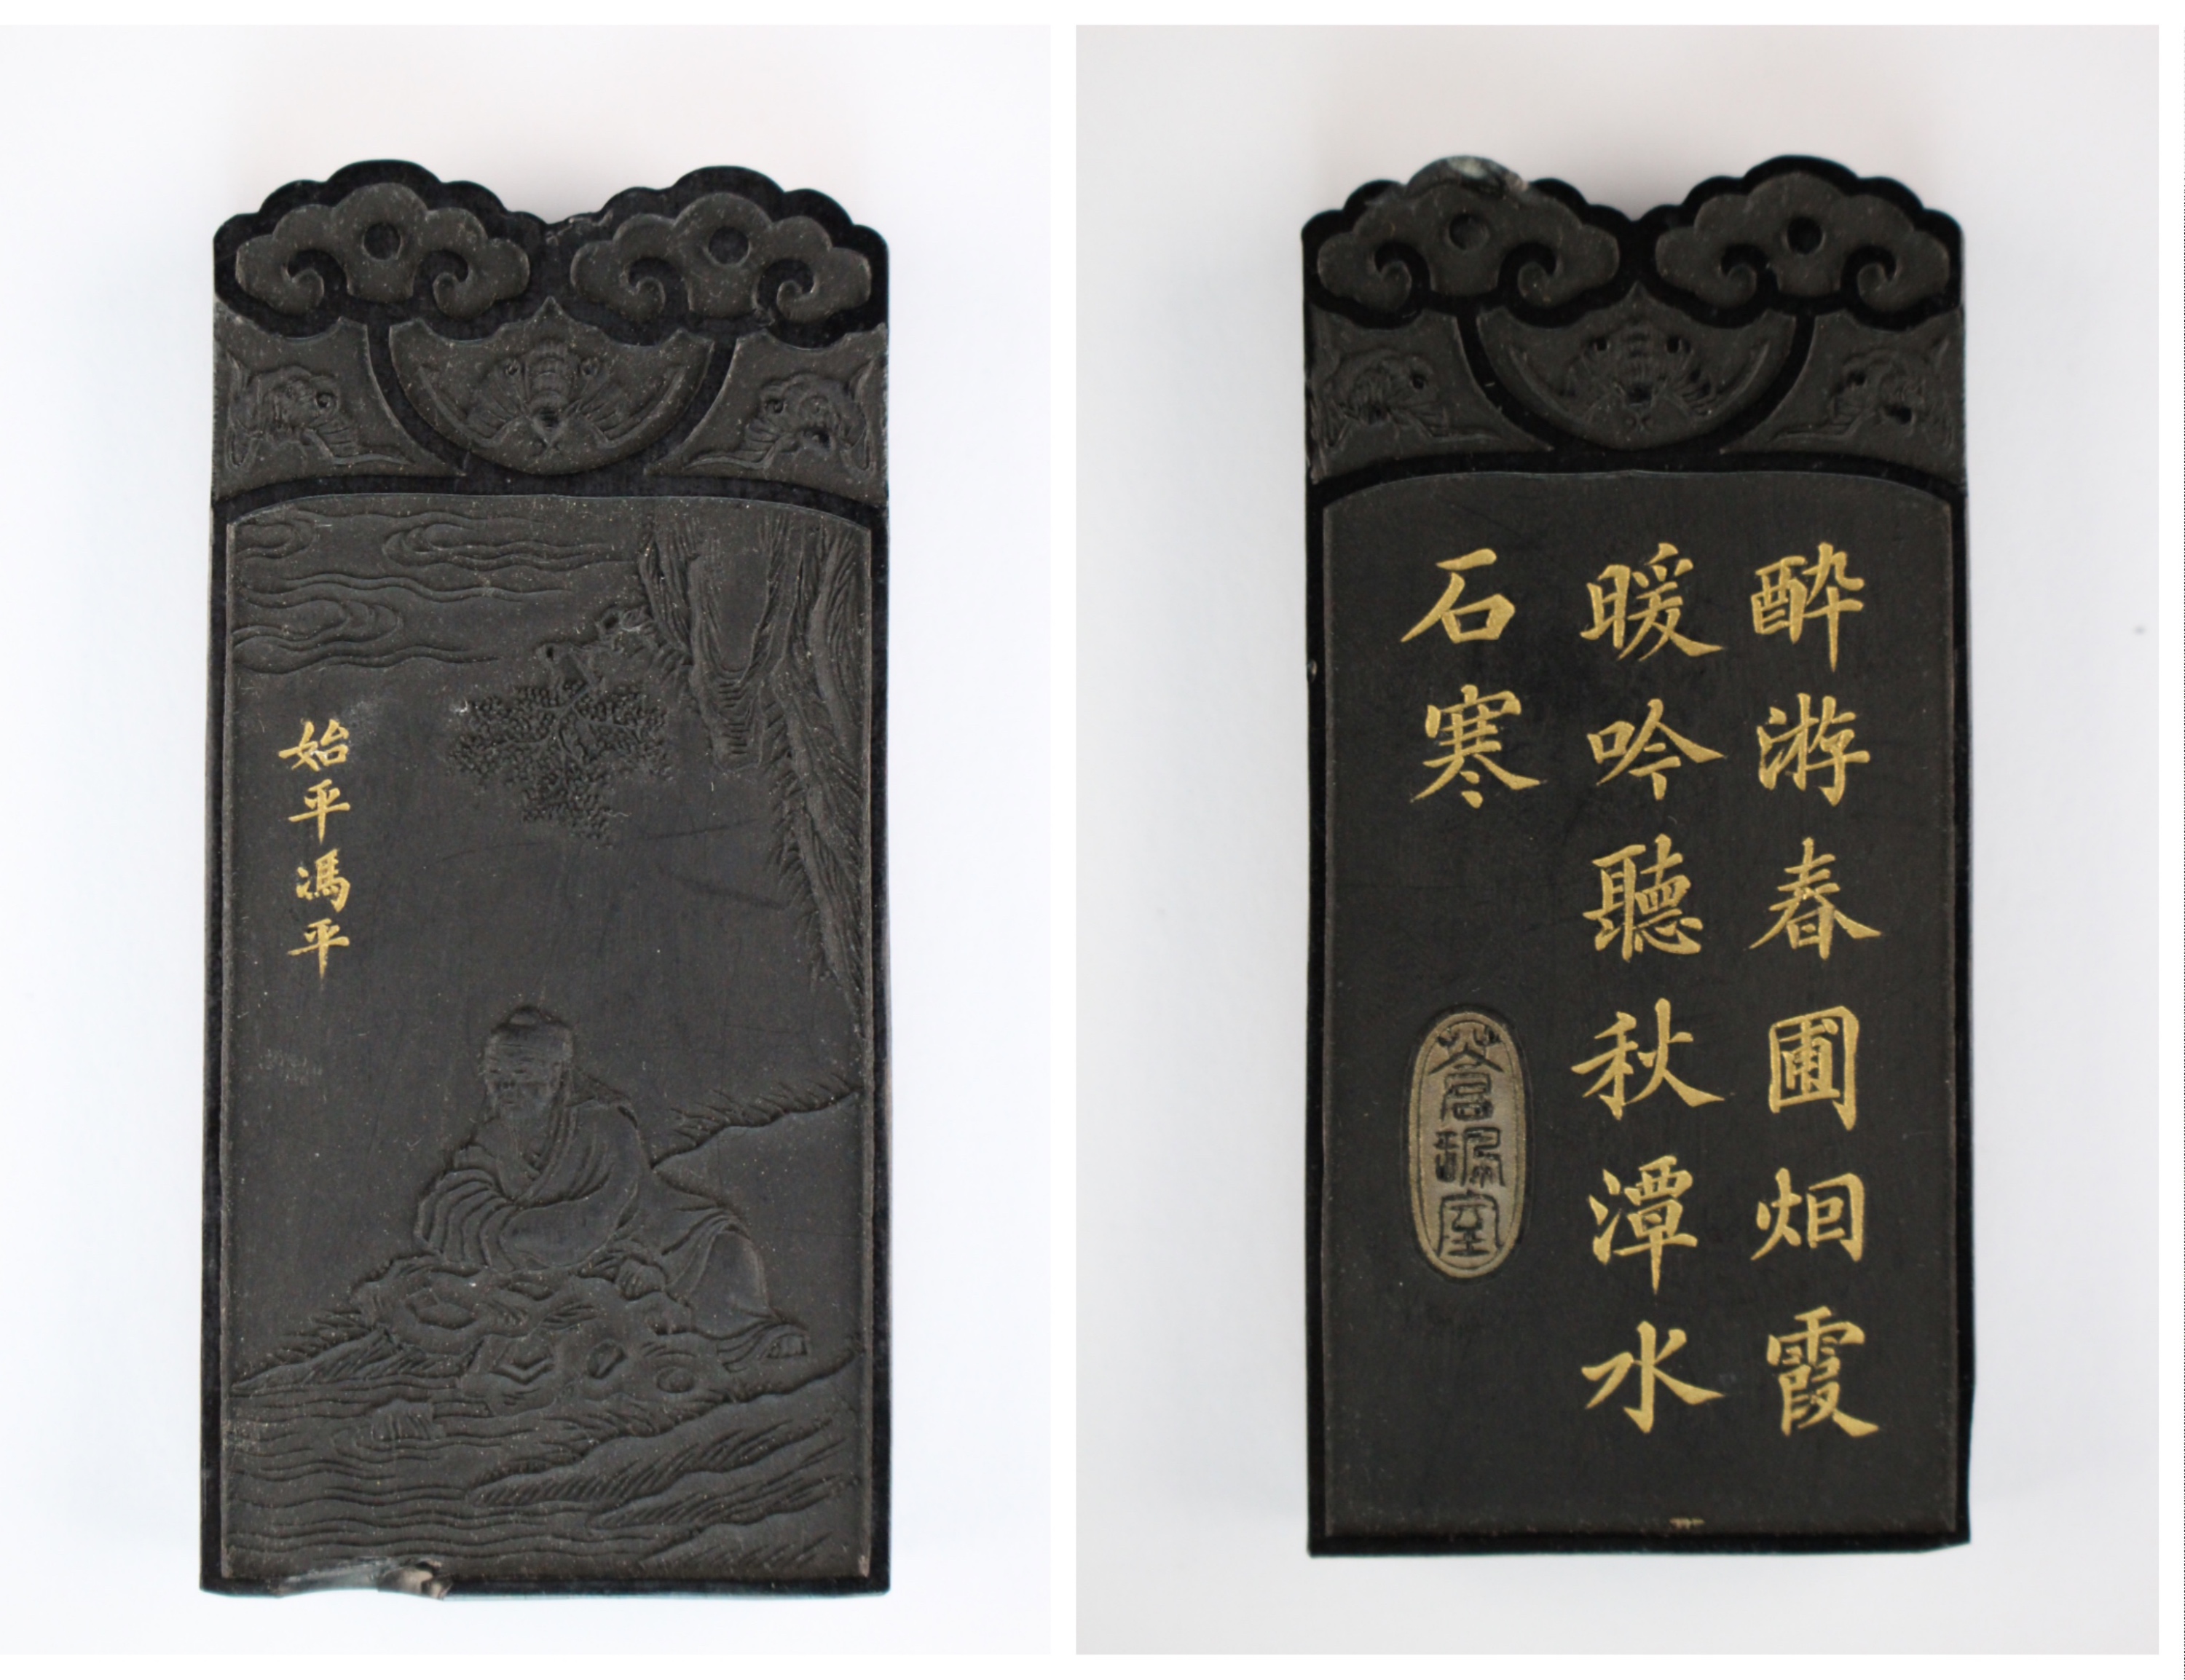 始平馮平
酔游春圃烟霞
暖吟聽秋潭水
石寒
蒼珮室